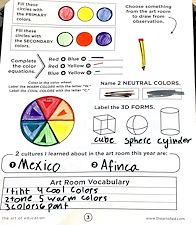 Fill these circles with the PRIMARY colors.
Choose something from the art room to draw from observation.
Fill these circles with the SECONDARY colors.
Complete the color equations.
Red Blue =
Red Yellow =
Blue Yellow =
Color in the color wheel.
Label the WARM COLORS with the letter "W."
Label the COOL COLORS with the letter "C."
Name 2 NEUTRAL COLORS.
Label the 3D FORMS.
cube sphere cylinder
2 cultures I learned about in the art room this year are:
1 Mexico 2 Africa
Art Room Vocabulary
1 tint 4 cool colors
2 tone 5 warm colors
3
the art of education
3
www.theartofed.com